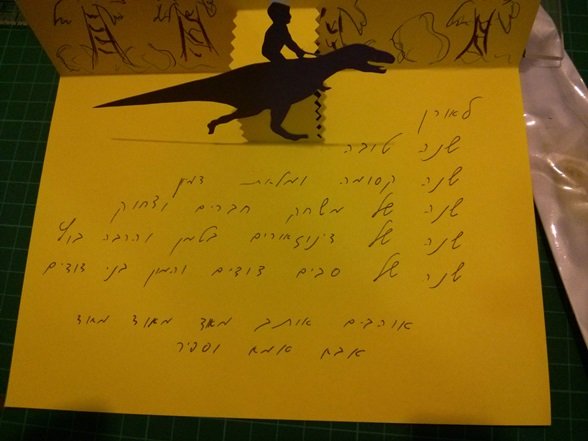 לאורן
שנה טובה
שנה קסומה ומלאת דמיון
שנה של משחק חברים וצחוק
שנה של דינוזאורים בטמן והרבה בוץ
שנה של סבים דודים והמון בני דודים
אוהבים אותך מאוד מאוד מאוד
אבא אמא וספיר